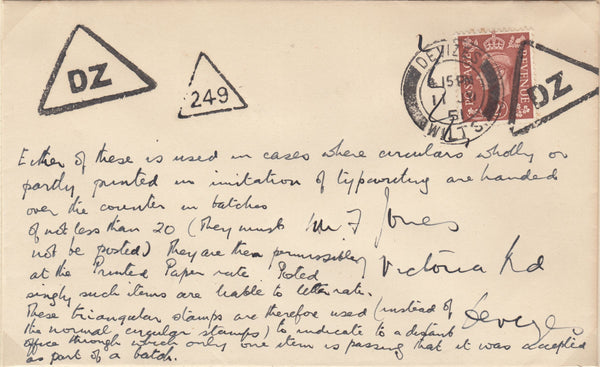 DZ
249
DEVIZES
15 PM
11 JA
51
WILTS.
POSTAGE REVENUE
DZ
Either of these is used in cases where circulars wholly or
partly printed in imitation of typewriting are handed
over the counter in batches
of not less than 20 (they must
not be posted) They are then permissibly
at the Printed Paper rate. Posted
singly such items are liable to letter rate.
These triangular stamps are therefore used (instead of
the normal circular stamps) to indicate to a distant
office through which only one item is passing that it was accepted
as part of a batch.
Mr F Jones
Victoria Rd
Devizes